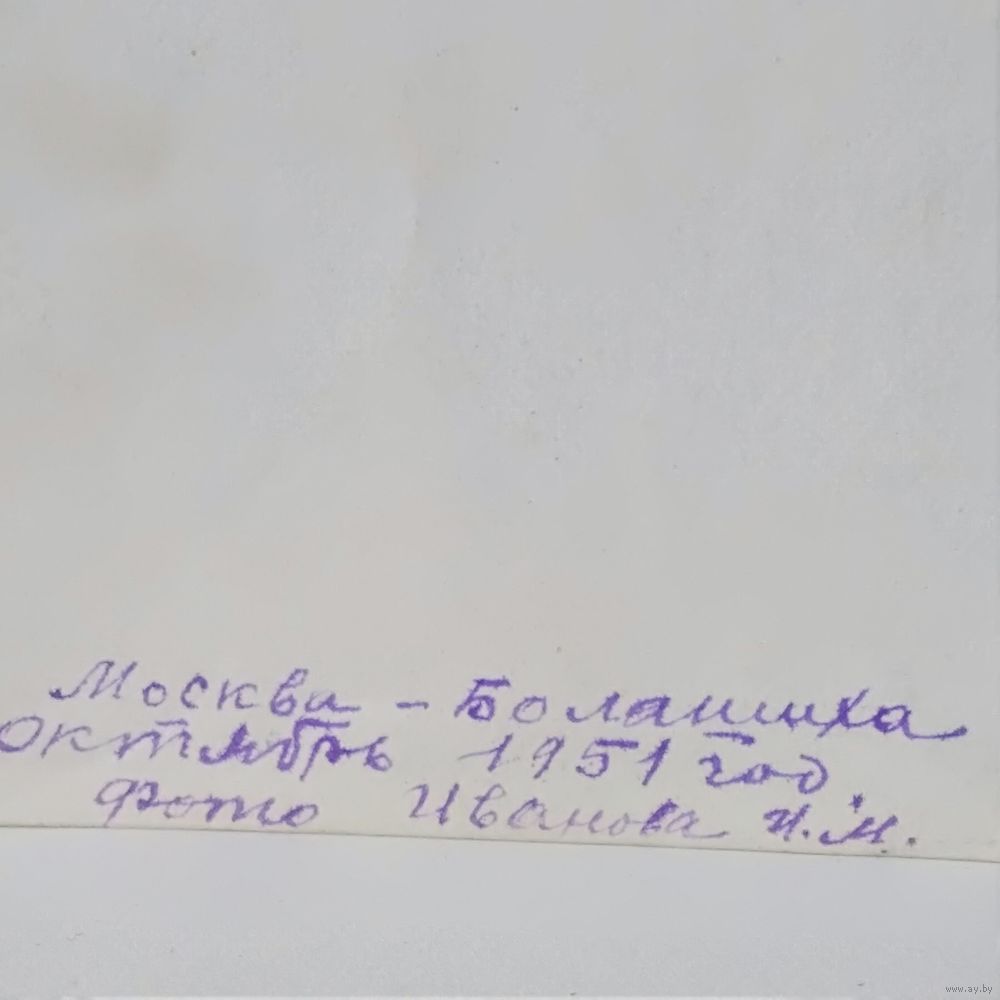 Москва - Болашиха
Октябрь 1951 год.
Фото Иванова И.М.
www.ay.by